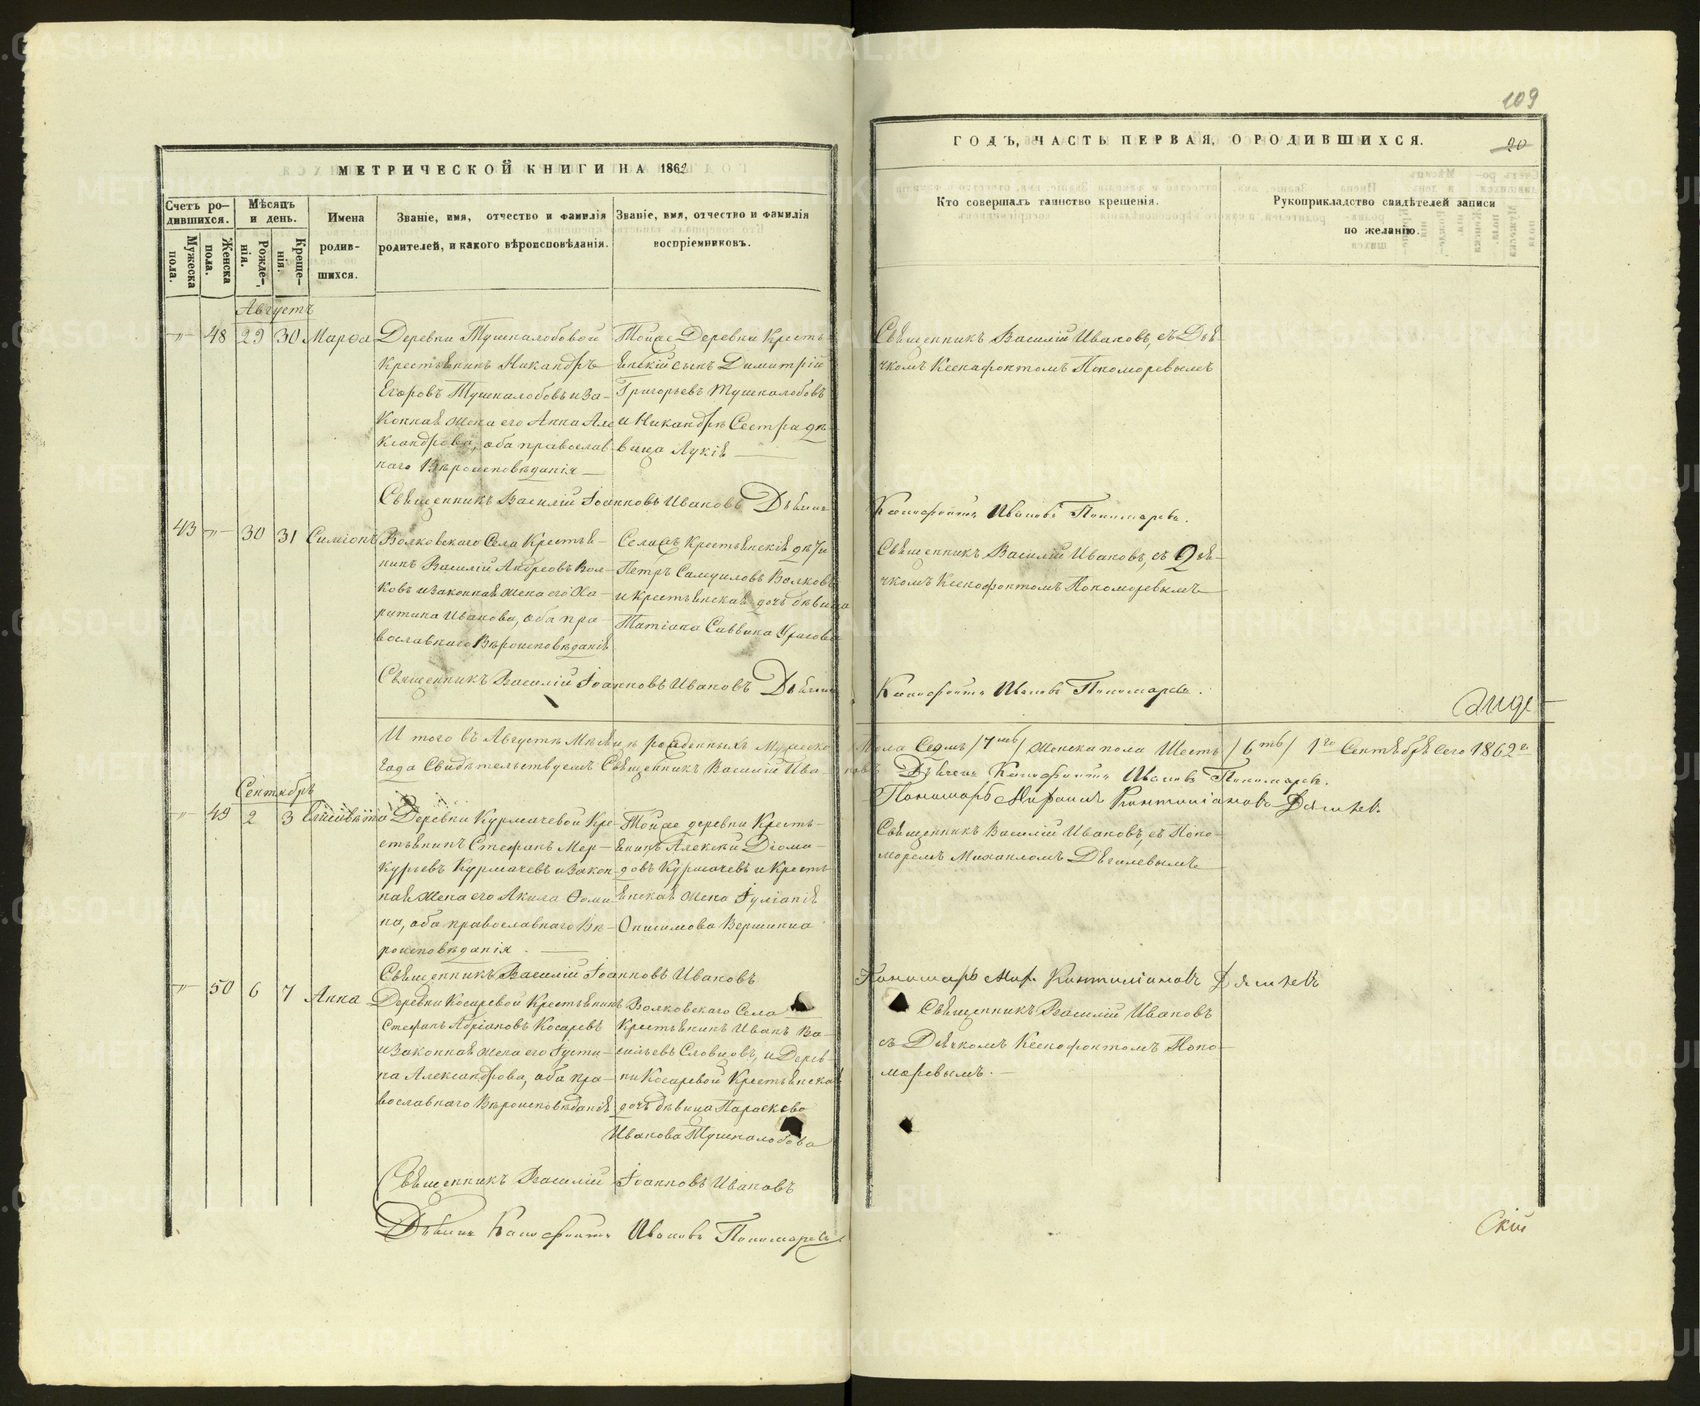 109
МЕТРИЧЕСКОЙ КНИГИ НА 1862
ГОДЪ, ЧАСТЬ ПЕРВАЯ, О РОДИВШИХСЯ.
20
Счетъ родившихся.
Мужеска пола.
Женска пола.
Мѣсяцъ и день.
Рожденія.
Крещенія.
Имена родившихся.
Званіе, имя, отчество и фамилія родителей, и какого вѣроисповѣданія.
Званіе, имя, отчество и фамилія воспріемниковъ.
Кто совершалъ таинство крещенія.
Рукоприкладство свидѣтелей записи по желанію.
Августъ
48 29 30 Марѳа
Деревни Тушналобовой
Крестьянинъ Никандръ
Егоровъ Тушналобовъ и За-
конная жена его Анна Але
ксандрова, оба православ-
наго Вѣроисповѣданія
Тойже Деревни Кресть
янскій сынъ Димитрій
Григорьевъ Тушналобовъ
и Никандръ Сестра дѣ
вица Лукія
Священникъ Василій Ивановъ, съ Дья
чкомъ Ксенофонтомъ Пономоревымъ
Священникъ Василій Іоанновъ Ивановъ Дьячекъ
Ксенофонтъ Ивановъ Пономаревъ.
43 30 31 Симеонъ
Волковскаго Села Крестья-
нинъ Василій Андреовъ Вол-
ковъ и законная жена его Ха-
ритина Иванова, оба пра-
вославнаго Вѣроисповѣданія
Петръ Самуиловъ Волковъ
и Крестьянская дочь дѣвица
Татіана Саввина
Священникъ Василій Ивановъ, съ Дья-
чкомъ Ксенофонтомъ Пономоревымъ
Священникъ Василій Іоанновъ Ивановъ Дьячекъ
Ксенофонтъ Ивановъ Пономаревъ.
И того въ Августѣ Мѣсяцѣ рожденныхъ Мужеска
пола Седмь /7мь/ Женска пола Шесть /6ть/ 1го Сентября сего 1862го
Года Свидѣтельствуемъ Священникъ Василій Ивановъ
Дьячекъ Ксенофонтъ Ивановъ Пономаревъ.
Сентябрь
49 2 3 Елисавета
Деревни Курмачевой Кре-
стьянинъ Стефанъ Мер-
курьевъ Курмачевъ и Закон
ная жена его Акила Ѳоми
на, оба православнаго Вѣ-
роисповѣданія
Тойже деревни Кресть-
янинъ Алексій Діоми-
довъ Курмачевъ и Кресть
янская жена Іуліанія
Онисимова Вершинина
Священникъ Василій Ивановъ, съ Поно-
моремъ Михаиломъ Дягилевымъ
Священникъ Василій Іоанновъ Ивановъ
50 6 7 Анна
Деревни Косаревой Крестьянинъ
Стефанъ Адріановъ Косаревъ
и Законная жена его Іусти-
на Александрова, оба пра-
вославнаго Вѣроисповѣданія
Волковскаго Села
Крестьянинъ Иванъ Ва-
сильевъ Словцовъ, и Дерев
ни Косаревой Крестьянская
дочь дѣвица Параскева
Иванова Тушналобова
Священникъ Василій Ивановъ
съ Дьячкомъ Ксенофонтомъ Поно-
маревымъ.
Священникъ Василій Іоанновъ Ивановъ
Дьячекъ Ксенофонтъ Ивановъ Пономаревъ
скій
METRIKI.GASO-URAL.RU